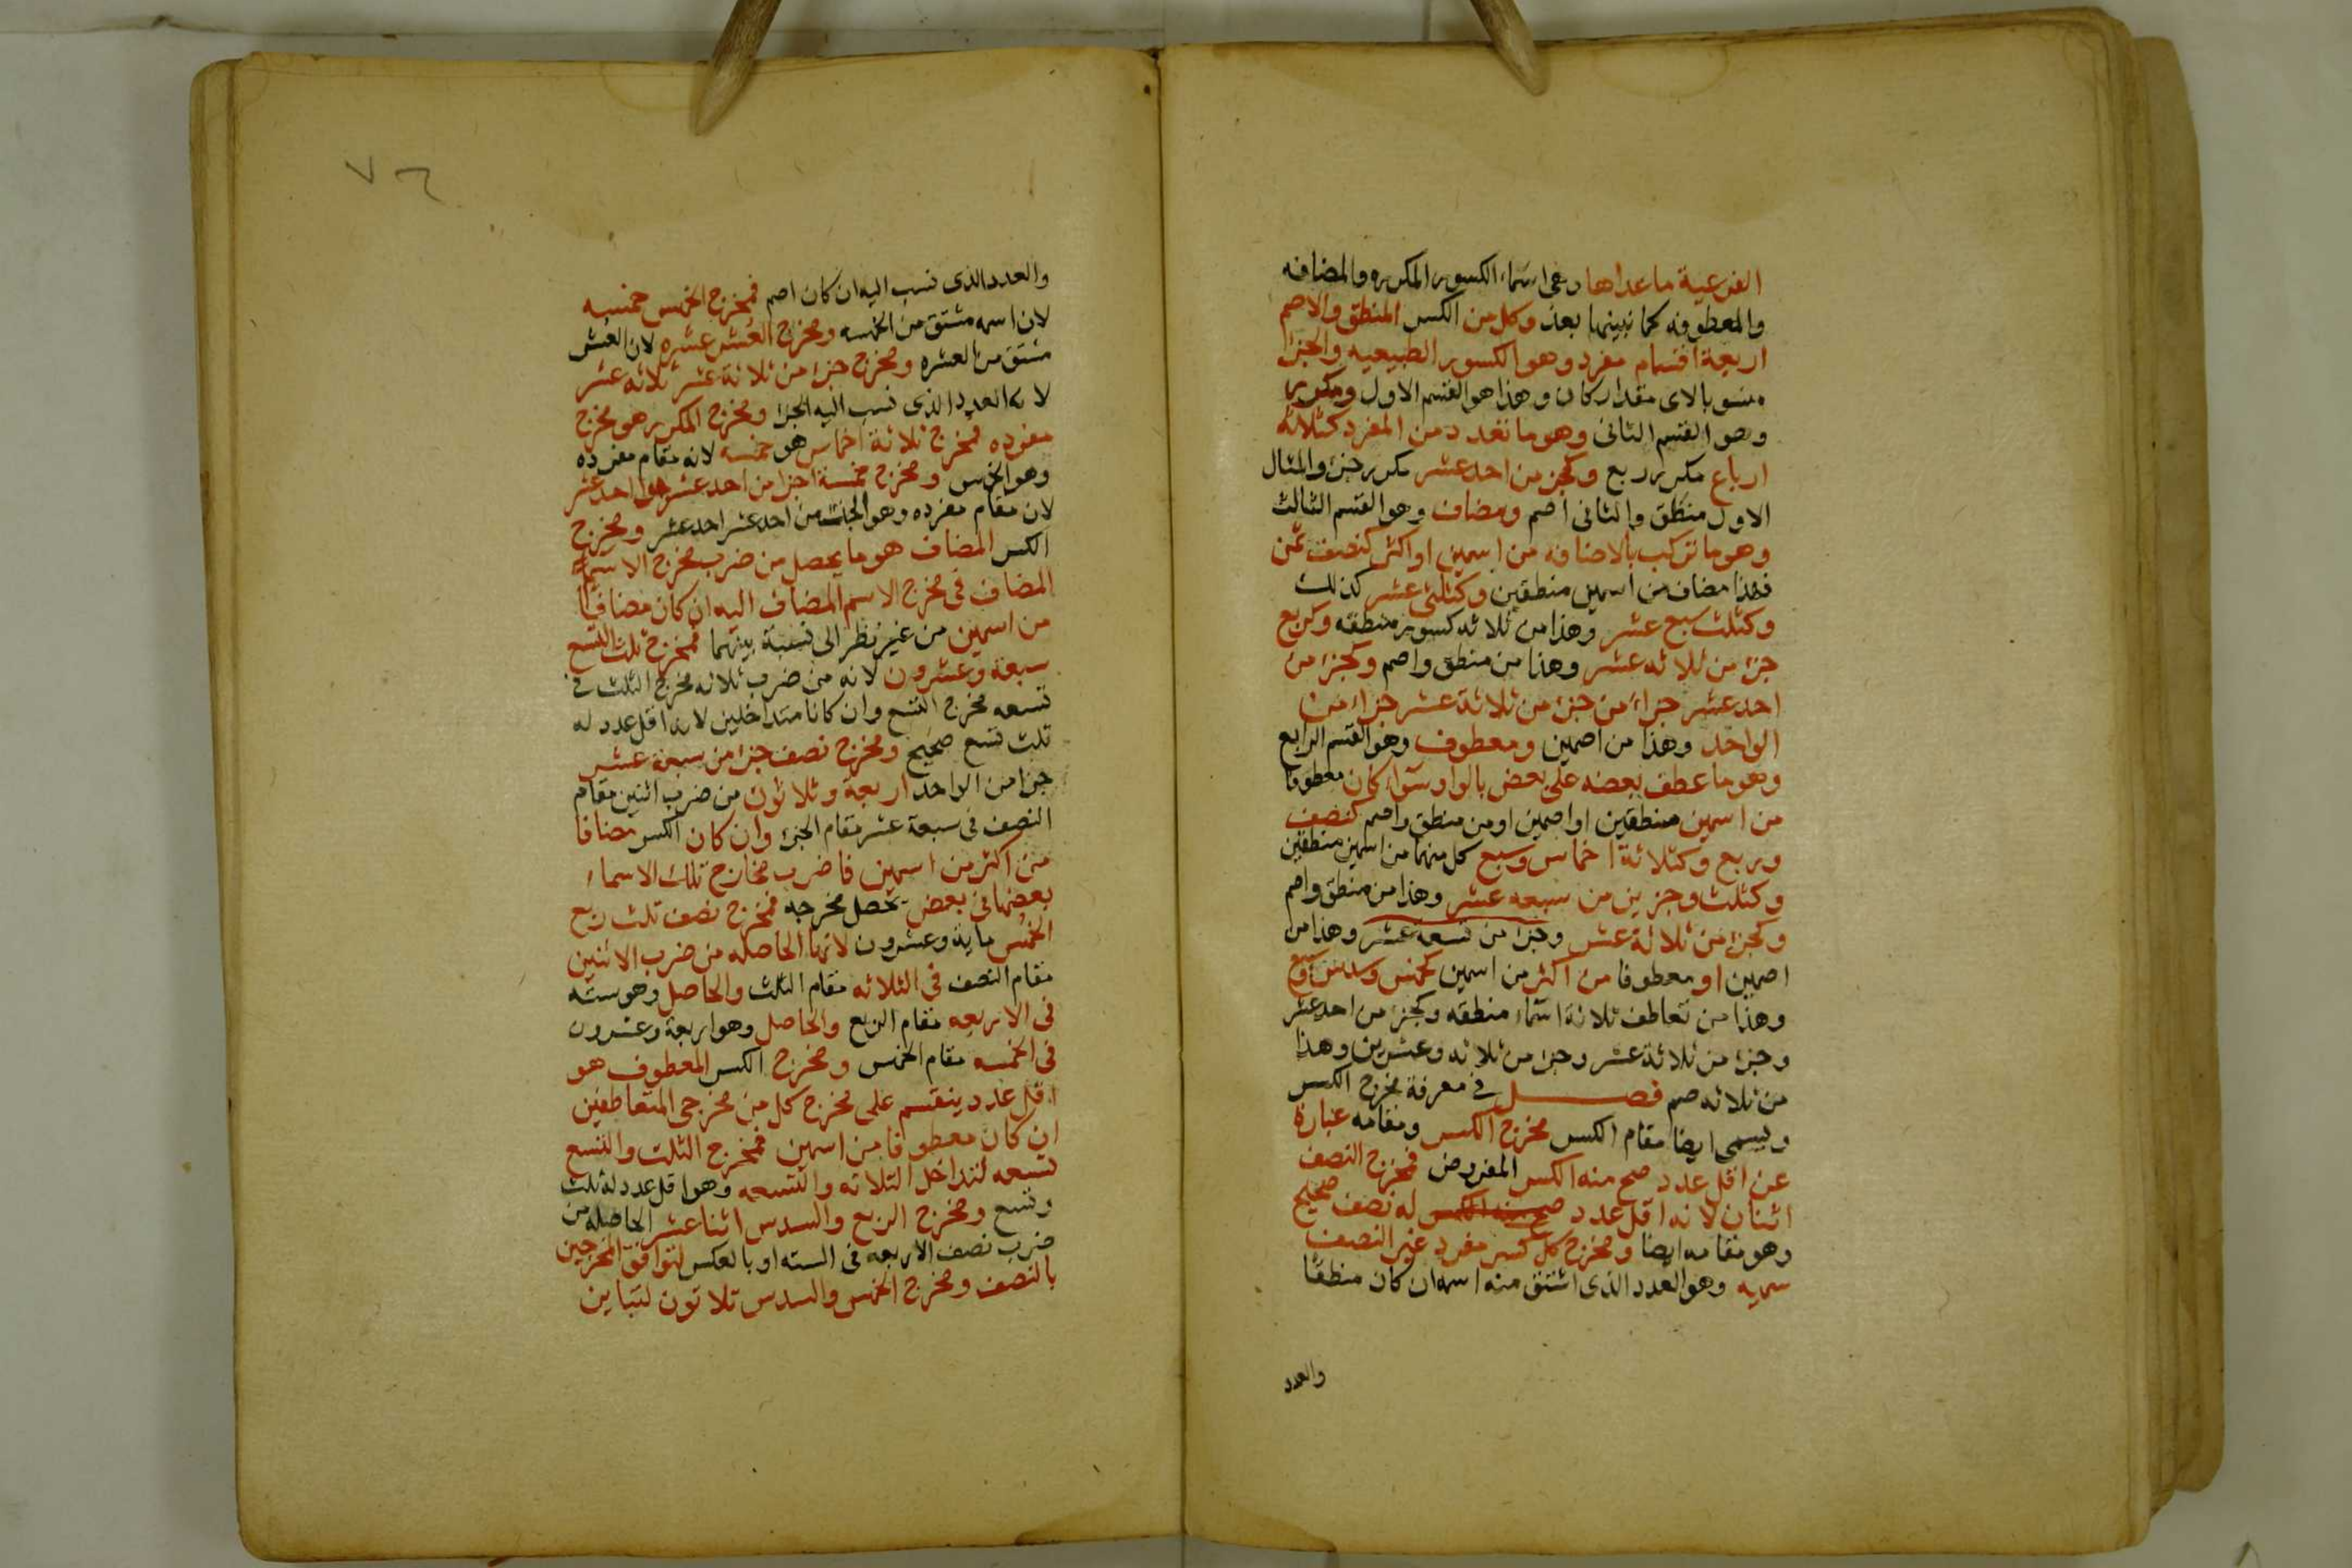 الفرعية ما عداها وهى اسماء الكسور المكرره والمضافه
والمعطوفه كما نبينها بعد وكل من الكسر المنطق والاصم
اربعة اقسام مفرد وهو الكسور الطبيعيه والجزء
منسوبا لاى مقدار كان وهذا هو القسم الاول ومكرر
وهو القسم الثانى وهو ما تعدد من المفرد كثلاثة
ارباع مكرر ربع وكجزء من احد عشر مكرر جزء والمثال
الاول منطق والثانى اصم ومضاف وهو القسم الثالث
وهو ما تركب بالاضافه من اسمين او اكثر كنصف ثمن
فهذا مضاف من اسمين منطقين وكثلثى عشر كذلك
وكثلث سبع عشر وهذا من ثلاثه كسور منطقه وكربع
جزء من ثلاثه عشر وهذا من منطق واصم وكجزء من
احد عشر جزاء من جزء من ثلاثة عشر جزاء من
الواحد وهذا من اصمين ومعطوف وهو القسم الرابع
وهو ما عطف بعضه على بعض بالواو سواء كان معطوفا
من اسمين منطقين او اصمين او من منطق واصم كنصف
وربع وكثلاثة اخماس وسبع كل منهما من اسمين منطقين
وكثلث وجزءين من سبعه عشر وهذا من منطق واصم
وكجزء من ثلاثة عشر وجزء من تسعة عشر وهذا من
اصمين او معطوفا من اكثر من اسمين كخمس وسدس وسبع
وهذا من تعاطف ثلاثة اسماء منطقه وكجزء من احد عشر
وجزء من ثلاثة عشر وجزء من ثلاثه وعشرين وهذا
من ثلاثه صم فصل فى معرفة مخرج الكسر
ويسمى ايضا مقام الكسر مخرج الكسر ومقامه عبارة
عن اقل عدد صح منه الكسر المفروض فمخرج النصف
اثنان لانه اقل عدد صح منه الكسر له نصف صحيح
وهو مقامه ايضا ومخرج كل كسر مفرد غير النصف
سميه وهو العدد الذى اشتق منه اسمه ان كان منطقا
والعدد
٧٦
والعدد الذى نسب اليه ان كان اصم فمخرج الخمس خمسه
لان اسمه مشتق من الخمسه ومخرج العشر عشره لان العشر
مشتق من العشره ومخرج جزء من ثلاثة عشر ثلاثه عشر
لانه العدد الذى نسب اليه الجزء ومخرج المكرر هو مخرج
مفرده فمخرج ثلاثة اخماس هو خمسه لانه مقام مفرده
وهو الخمس ومخرج خمسة اجزا من احد عشر هو احد عشر
لان مقام مفرده وهو الجزء من احد عشر احد عشر ومخرج
الكسر المضاف هو ما يحصل من ضرب مخرج الاسم
المضاف فى مخرج الاسم المضاف اليه ان كان مضافا
من اسمين من غير نظر الى نسبة بينهما فمخرج ثلث التسع
سبعة وعشرون لانه من ضرب ثلاثه مخرج الثلث فى
تسعه مخرج التسع وان كانا متداخلين لانه اقل عدد له
ثلث تسع صحيح ومخرج نصف جزء من سبعة عشر
جزا من الواحد اربعة وثلاثون من ضرب اثنين مقام
النصف فى سبعة عشر مقام الجزء وان كان الكسر مضافا
من اكثر من اسمين فاضرب مخارج تلك الاسماء
بعضها فى بعض يحصل مخرجه فمخرج نصف ثلث ربع
الخمس ماية وعشرون لانها الحاصله من ضرب الاثنين
مقام النصف فى الثلاثه مقام الثلث والحاصل وهو سته
فى الاربعه مقام الربع والحاصل وهو اربعة وعشرون
فى الخمسه مقام الخمس ومخرج الكسر المعطوف هو
اقل عدد ينقسم على مخرج كل من مخرجى المتعاطفين
ان كان معطوفا من اسمين فمخرج الثلث والتسع
تسعه لتداخل الثلاثه والتسعه وهو اقل عدد له ثلث
وتسع ومخرج الربع والسدس اثنا عشر الحاصله من
ضرب نصف الاربعه فى السته او بالعكس لتوافق المخرجين
بالنصف ومخرج الخمس والسدس ثلاثون لتباين